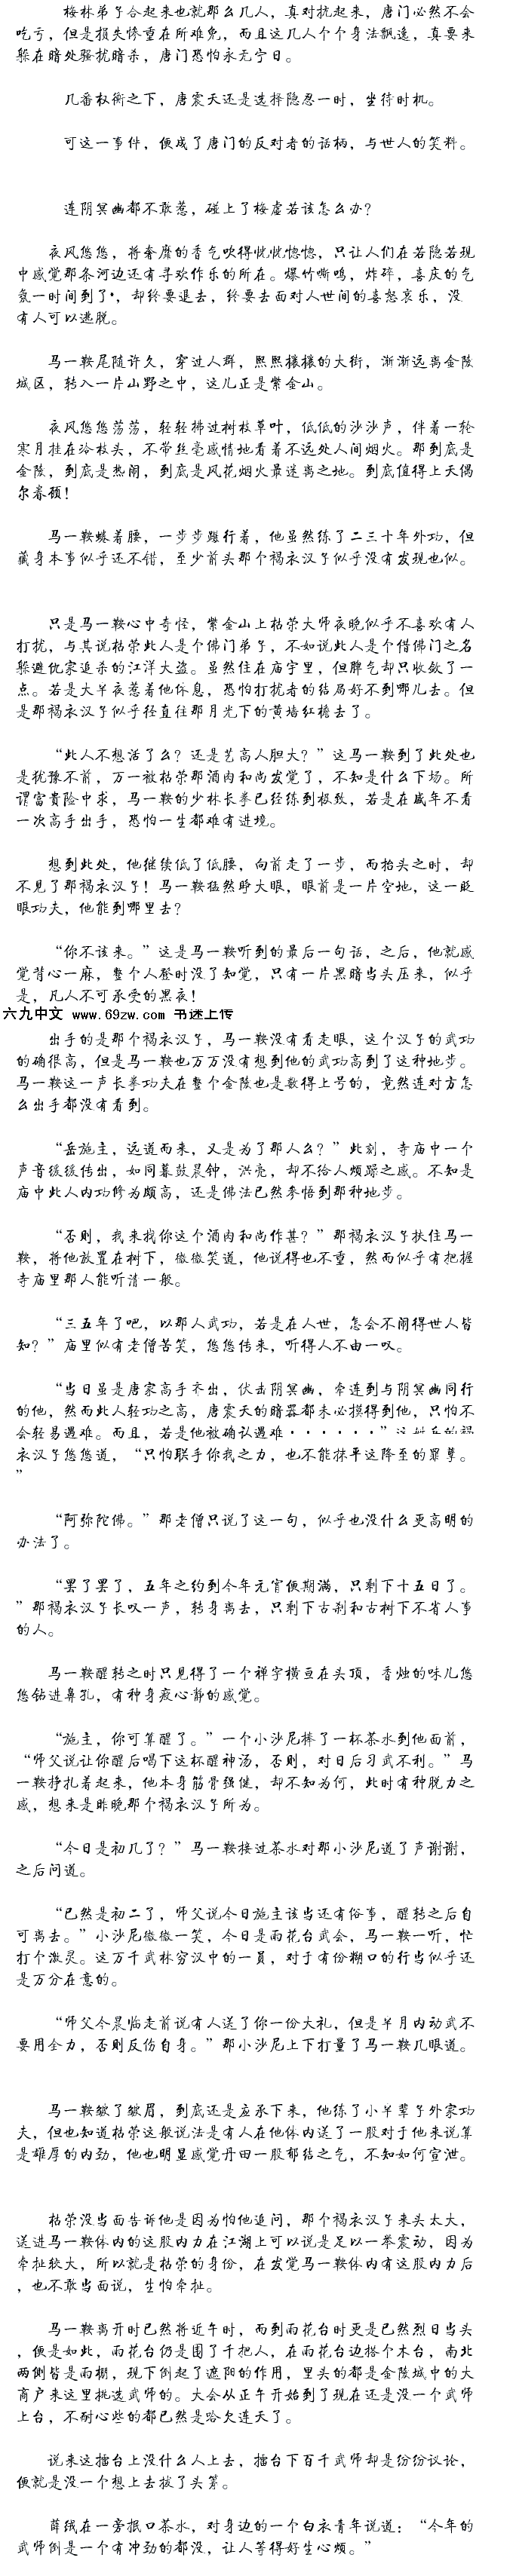 梅林弟子合起来也就那么几人，真对抗起来，唐门必然不会
吃亏，但是损失惨重在所难免，而且这几人个个身法飘逸，真要来
躲在暗处骚扰暗杀，唐门恐怕永无宁日。
几番权衡之下，唐震天还是选择隐忍一时，坐待时机。
可这一事件，便成了唐门的反对者的话柄，与世人的笑料。
连阴冥幽都不敢惹，碰上了梅虚若该怎么办？
夜风悠悠，将奢靡的香气吹得恍恍惚惚，只让人们在若隐若现
中感觉那条河边还有寻欢作乐的所在。爆竹嘶鸣，炸碎，喜庆的气
氛一时间到了，却终要退去，终要去面对人世间的喜怒哀乐，没
有人可以逃脱。
马一鞍尾随许久，穿过人群，熙熙攘攘的大街，渐渐远离金陵
城区，转入一片山野之中，这儿正是紫金山。
夜风悠悠荡荡，轻轻拂过树枝草叶，低低的沙沙声，伴着一轮
寒月挂在冷枝头，不带丝毫感情地看着不远处人间烟火。那到底是
金陵，到底是热闹，到底是风花烟火最迷离之地。到底值得上天偶
尔眷顾！
马一鞍蜷着腰，一步步蹑行着，他虽然练了二三十年外功，但
藏身本事似乎还不错，至少前头那个褐衣汉子似乎没有发现也似。
只是马一鞍心中奇怪，紫金山上枯荣大师夜晚似乎不喜欢有人
打扰，与其说枯荣此人是个佛门弟子，不如说此人是个借佛门之名
躲避仇家追杀的江洋大盗。虽然住在庙宇里，但脾气却只收敛了一
点。若是大半夜惹着他休息，恐怕打扰者的结局好不到哪儿去。但
是那褐衣汉子似乎径直往那月光下的黄墙红檐去了。
“此人不想活了么？还是艺高人胆大？”这马一鞍到了此处也
是犹豫不前，万一被枯荣那酒肉和尚发觉了，不知是什么下场。所
谓富贵险中求，马一鞍的少林长拳已经练到极致，若是在盛年不看
一次高手出手，恐怕一生都难有进境。
想到此处，他继续低了低腰，向前走了一步，而抬头之时，却
不见了那褐衣汉子！马一鞍猛然睁大眼，眼前是一片空地，这一眨
眼功夫，他能到哪里去？
“你不该来。”这是马一鞍听到的最后一句话，之后，他就感
觉背心一麻，整个人登时没了知觉，只有一片黑暗当头压来，似乎
是，凡人不可承受的黑夜！
六九中文 www.69zw.com 书迷上传
出手的是那个褐衣汉子，马一鞍没有看走眼，这个汉子的武功
的确很高，但是马一鞍也万万没有想到他的武功高到了这种地步。
马一鞍这一声长拳功夫在整个金陵也是数得上号的，竟然连对方怎
么出手都没有看到。
“岳施主，远道而来，又是为了那人么？”此刻，寺庙中一个
声音缓缓传出，如同暮鼓晨钟，洪亮，却不给人烦躁之感。不知是
庙中此人内功修为颇高，还是佛法已然参悟到那种地步。
“否则，我来找你这个酒肉和尚作甚？”那褐衣汉子扶住马一
鞍，将他放置在树下，微微笑道，他说得也不重，然而似乎有把握
寺庙里那人能听清一般。
“三五年了吧，以那人武功，若是在人世，怎会不闹得世人皆
知？”庙里似有老僧苦笑，悠悠传来，听得人不由一叹。
“当日虽是唐家高手齐出，伏击阴冥幽，牵连到与阴冥幽同行
的他，然而此人轻功之高，唐震天的暗器都未必摸得到他，只怕不
会轻易遇难。而且，若是他被确认遇难······”这姓岳的褐
衣汉子悠悠道，“只怕联手你我之力，也不能抹平这降至的罪孽。
”
“阿弥陀佛。”那老僧只说了这一句，似乎也没什么更高明的
办法了。
“罢了罢了，五年之约到今年元宵便期满，只剩下十五日了。
”那褐衣汉子长叹一声，转身离去，只剩下古刹和古树下不省人事
的人。
马一鞍醒转之时只见得了一个禅字横亘在头顶，香烛的味儿悠
悠钻进鼻孔，有种身疲心静的感觉。
“施主，你可算醒了。”一个小沙尼捧了一杯茶水到他面前，
“师父说让你醒后喝下这杯醒神汤，否则，对日后习武不利。”马
一鞍挣扎着起来，他本身筋骨强健，却不知为何，此时有种脱力之
感，想来是昨晚那个褐衣汉子所为。
“今日是初几了？”马一鞍接过茶水对那小沙尼道了声谢谢，
之后问道。
“已然是初二了，师父说今日施主该当还有俗事，醒转之后自
可离去。”小沙尼微微一笑，今日是雨花台武会，马一鞍一听，忙
打个激灵。这万千武林穷汉中的一员，对于有份糊口的行当似乎还
是万分在意的。
“师父今晨临走前说有人送了你一份大礼，但是半月内动武不
要用全力，否则反伤自身。”那小沙尼上下打量了马一鞍几眼道。
马一鞍皱了皱眉，到底还是应承下来，他练了小半辈子外家功
夫，但也知道枯荣这般说法是有人在他体内送了一股对于他来说算
是雄厚的内劲，他也明显感觉丹田一股郁结之气，不知如何宣泄。
枯荣没当面告诉他是因为怕他追问，那个褐衣汉子来头太大，
送进马一鞍体内的这股内力在江湖上可以说是足以一举震动，因为
牵扯较大，所以就是枯荣的身份，在发觉马一鞍体内有这股内力后
，也不敢当面说，生怕牵扯。
马一鞍离开时已然将近午时，而到雨花台时更是已然烈日当头
，便是如此，雨花台仍是围了千把人，在雨花台边搭个木台，南北
两侧皆是雨棚，现下倒起了遮阳的作用，里头的都是金陵城中的大
商户来这里挑选武师的。大会从正午开始到了现在还是没一个武师
上台，不耐心些的都已然是哈欠连天了。
说来这擂台上没什么人上去，擂台下百千武师却是纷纷议论，
便就是没一个想上去拔了头筹。
薛绒在一旁抿口茶水，对身边的一个白衣青年说道：“今年的
武师倒是一个有冲劲的都没，让人等得好生心烦。”